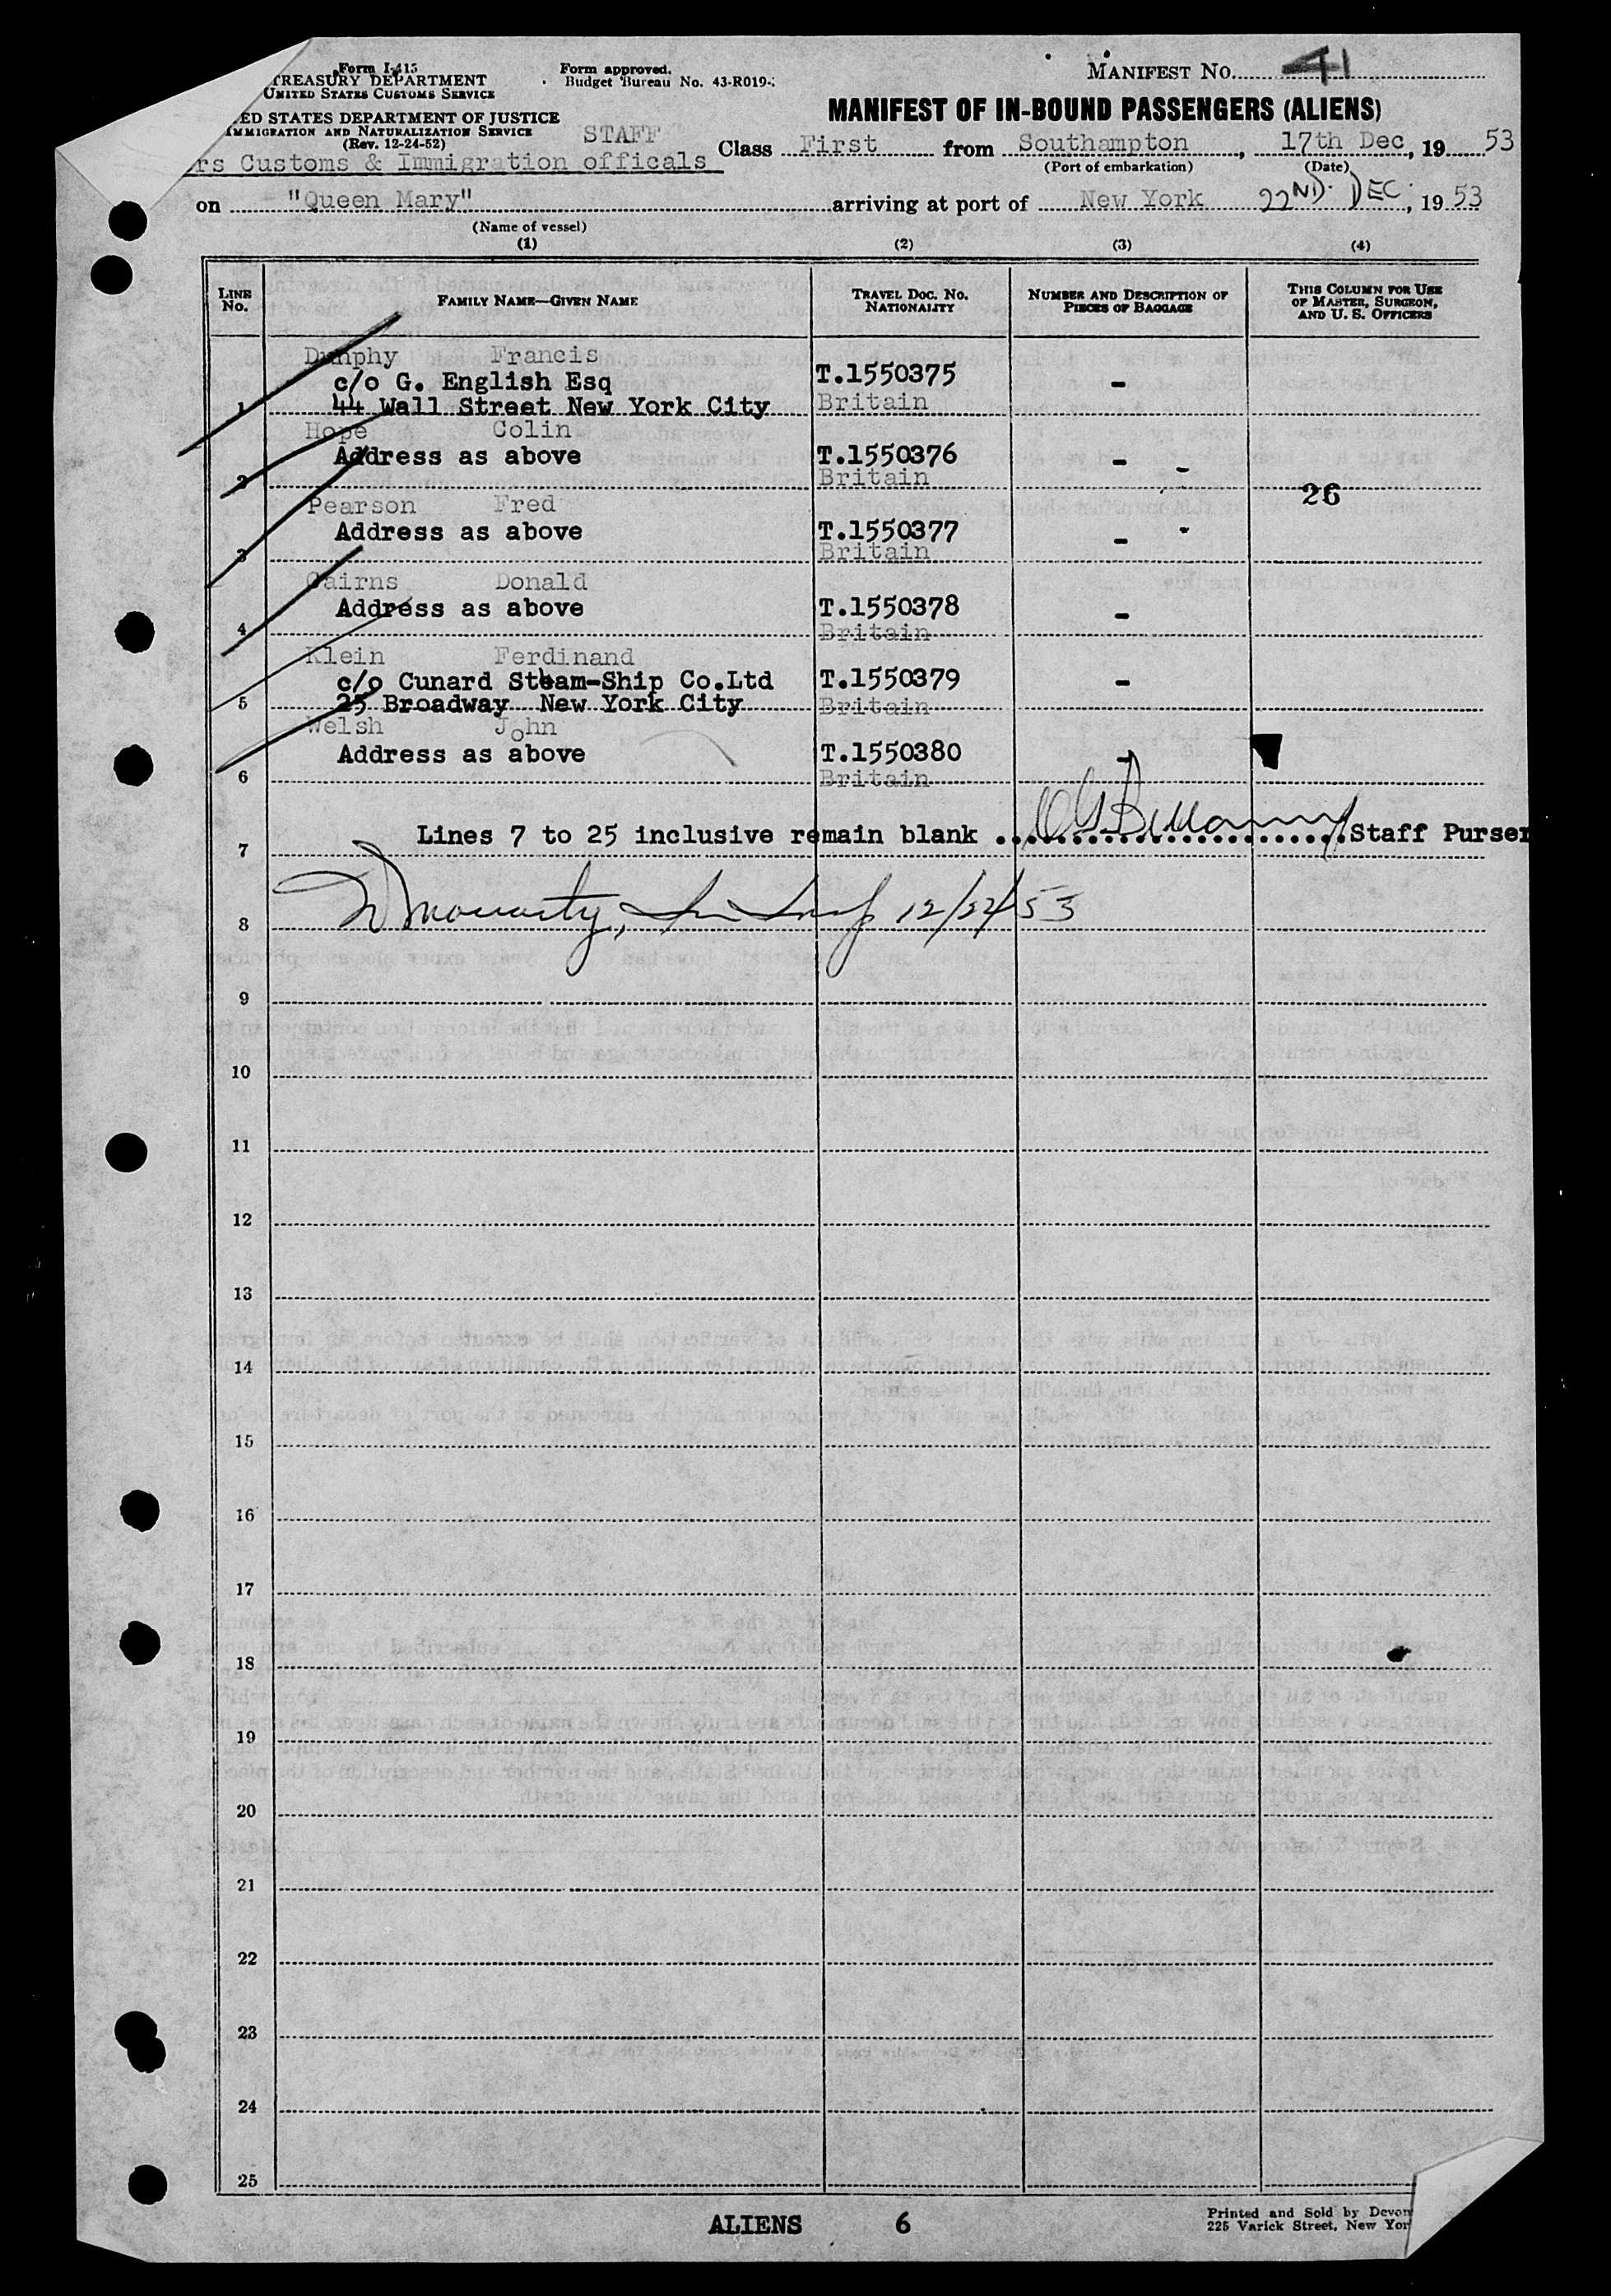 Form I-415
TREASURY DEPARTMENT
UNITED STATES CUSTOMS SERVICE
Form approved.
Budget Bureau No. 43-R019-
MANIFEST NO. 41
ED STATES DEPARTMENT OF JUSTICE
IMMIGRATION AND NATURALIZATION SERVICE
(Rev. 12-24-52)
STAFF
MANIFEST OF IN-BOUND PASSENGERS (ALIENS)
rs Customs & Immigration officals
Class First from Southampton, 17th Dec, 19 53
(Port of embarkation) (Date)
on "Queen Mary" arriving at port of New York 22ND. DEC., 19 53
(Name of vessel)
(1) (2) (3) (4)
LINE NO. FAMILY NAME—GIVEN NAME TRAVEL DOC. NO. NATIONALITY NUMBER AND DESCRIPTION OF PIECES OF BAGGAGE THIS COLUMN FOR USE OF MASTER, SURGEON, AND U. S. OFFICERS
Dunphy Francis
c/o G. English Esq T.1550375 -
1 44 Wall Street New York City Britain
Hope Colin
Address as above T.1550376 - -
2 Britain
26
Pearson Fred
Address as above T.1550377 - -
3 Britain
Cairns Donald
Address as above T.1550378 -
4 Britain
Klein Ferdinand
c/o Cunard Steam-Ship Co.Ltd T.1550379 -
5 25 Broadway New York City Britain
Welsh John
Address as above T.1550380 -
6 Britain
7 Lines 7 to 25 inclusive remain blank Staff Purser
8 12/22/53
9
10
11
12
13
14
15
16
17
18
19
20
21
22
23
24
25
ALIENS 6
Printed and Sold by Devon
225 Varick Street, New Yor